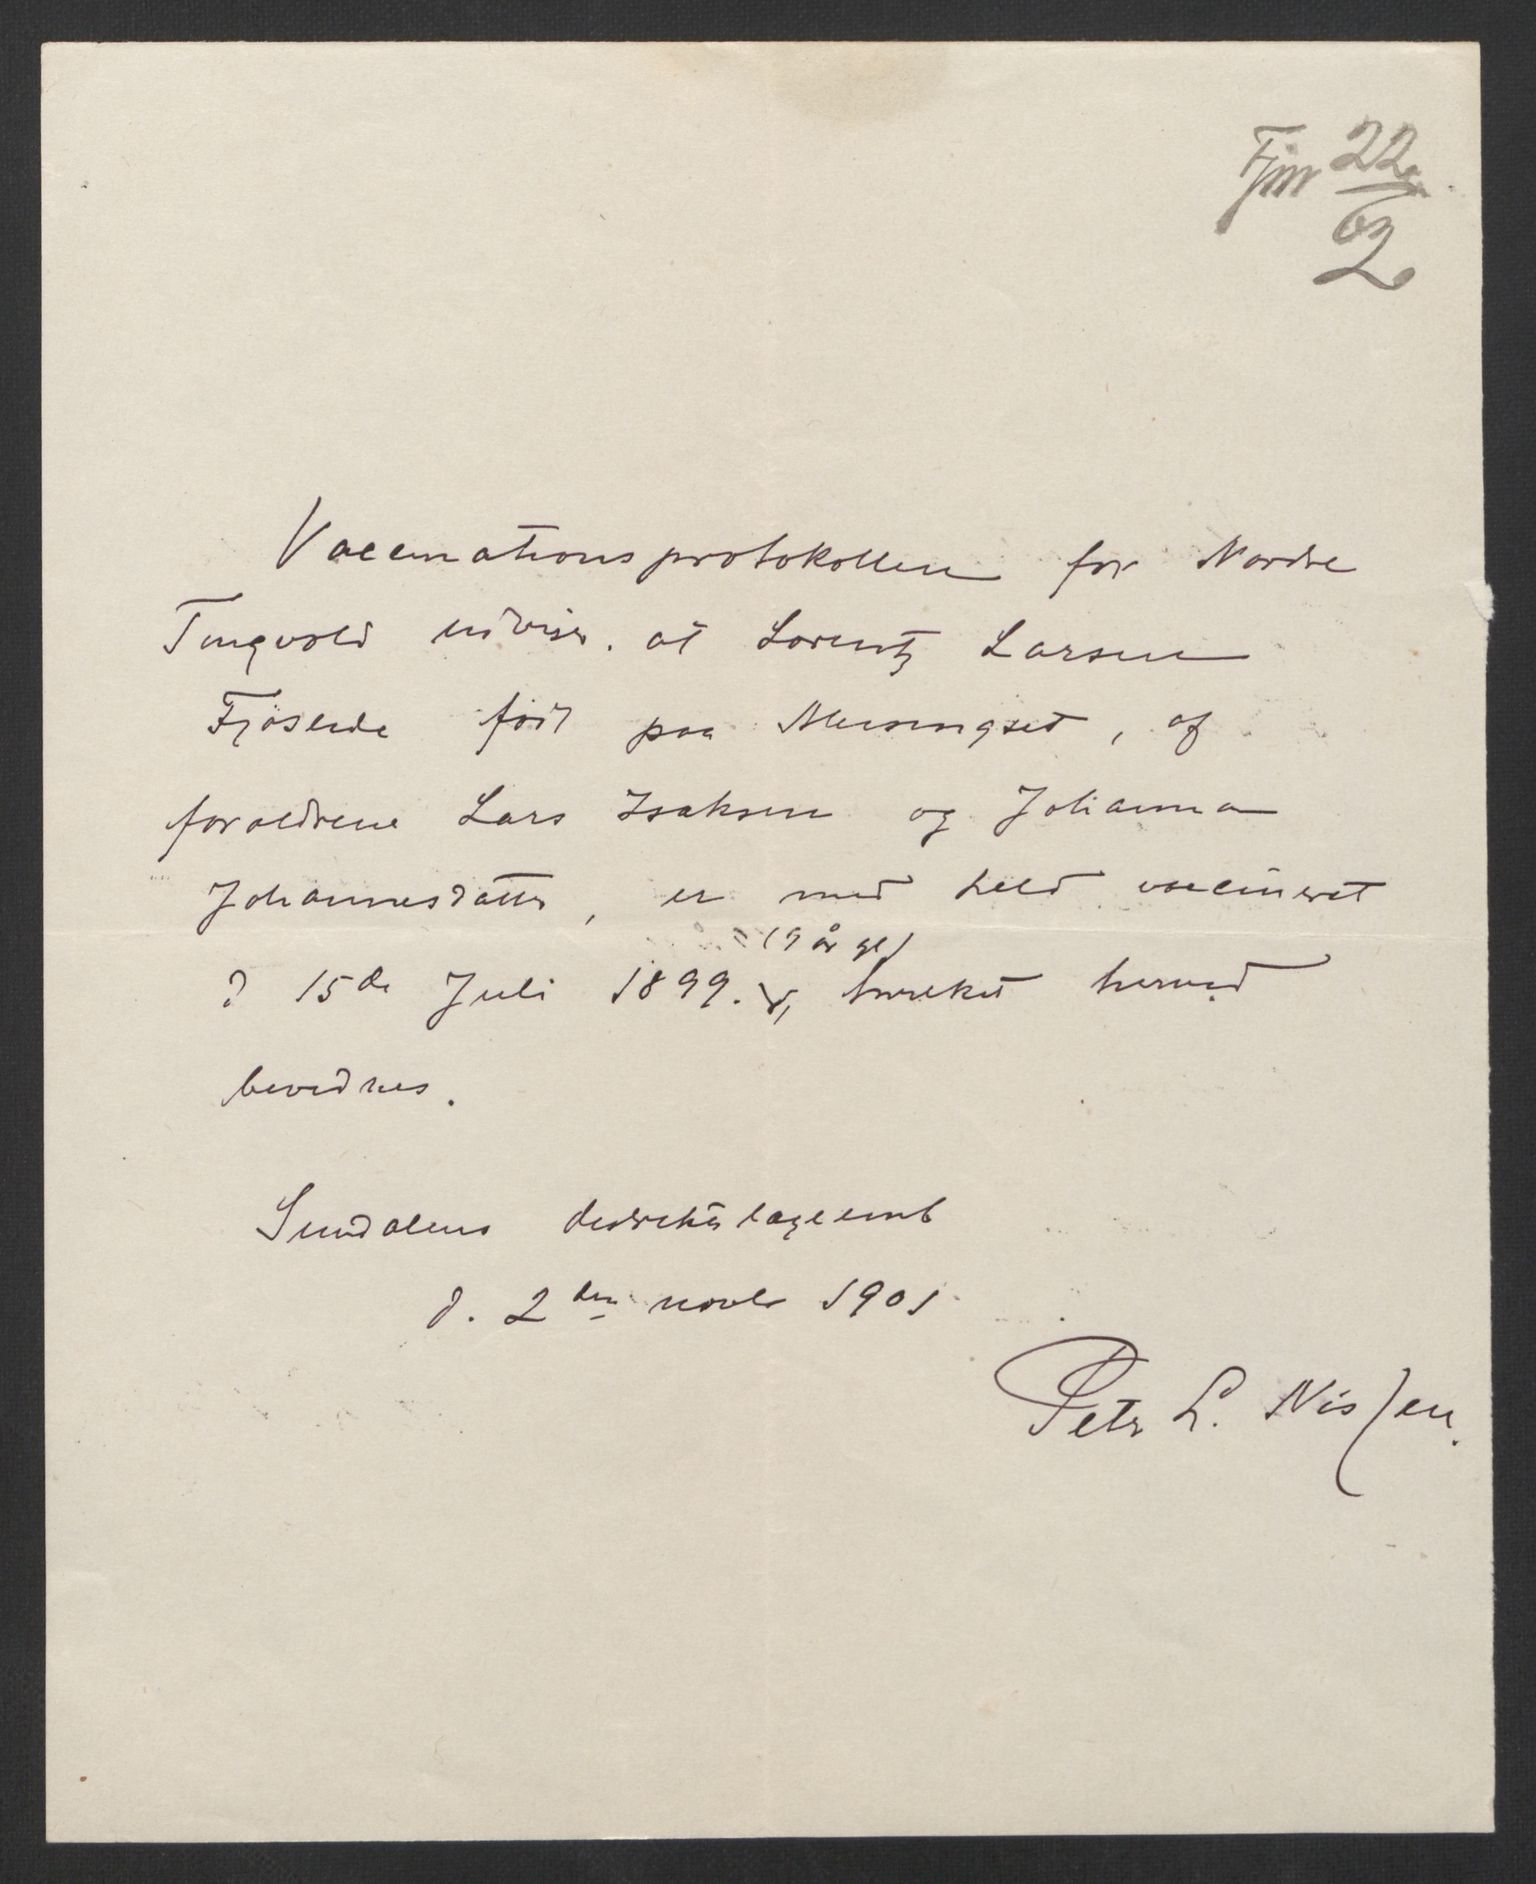 22
2
Vaccinationsprotokollen for Nordre
Tingvold udviser. at Lorentz Larsen
Fjøseide født paa Meisingset, af
forældrene Lars Isaksen og Johanna
Johannesdatter, er med held vaccineret
d 15de Juli 1899. (9 år gl), hvilket herved
bevidnes.
Sundalens distriktslægeemb
d. 2den novbr 1901
Petr L. Nissen.